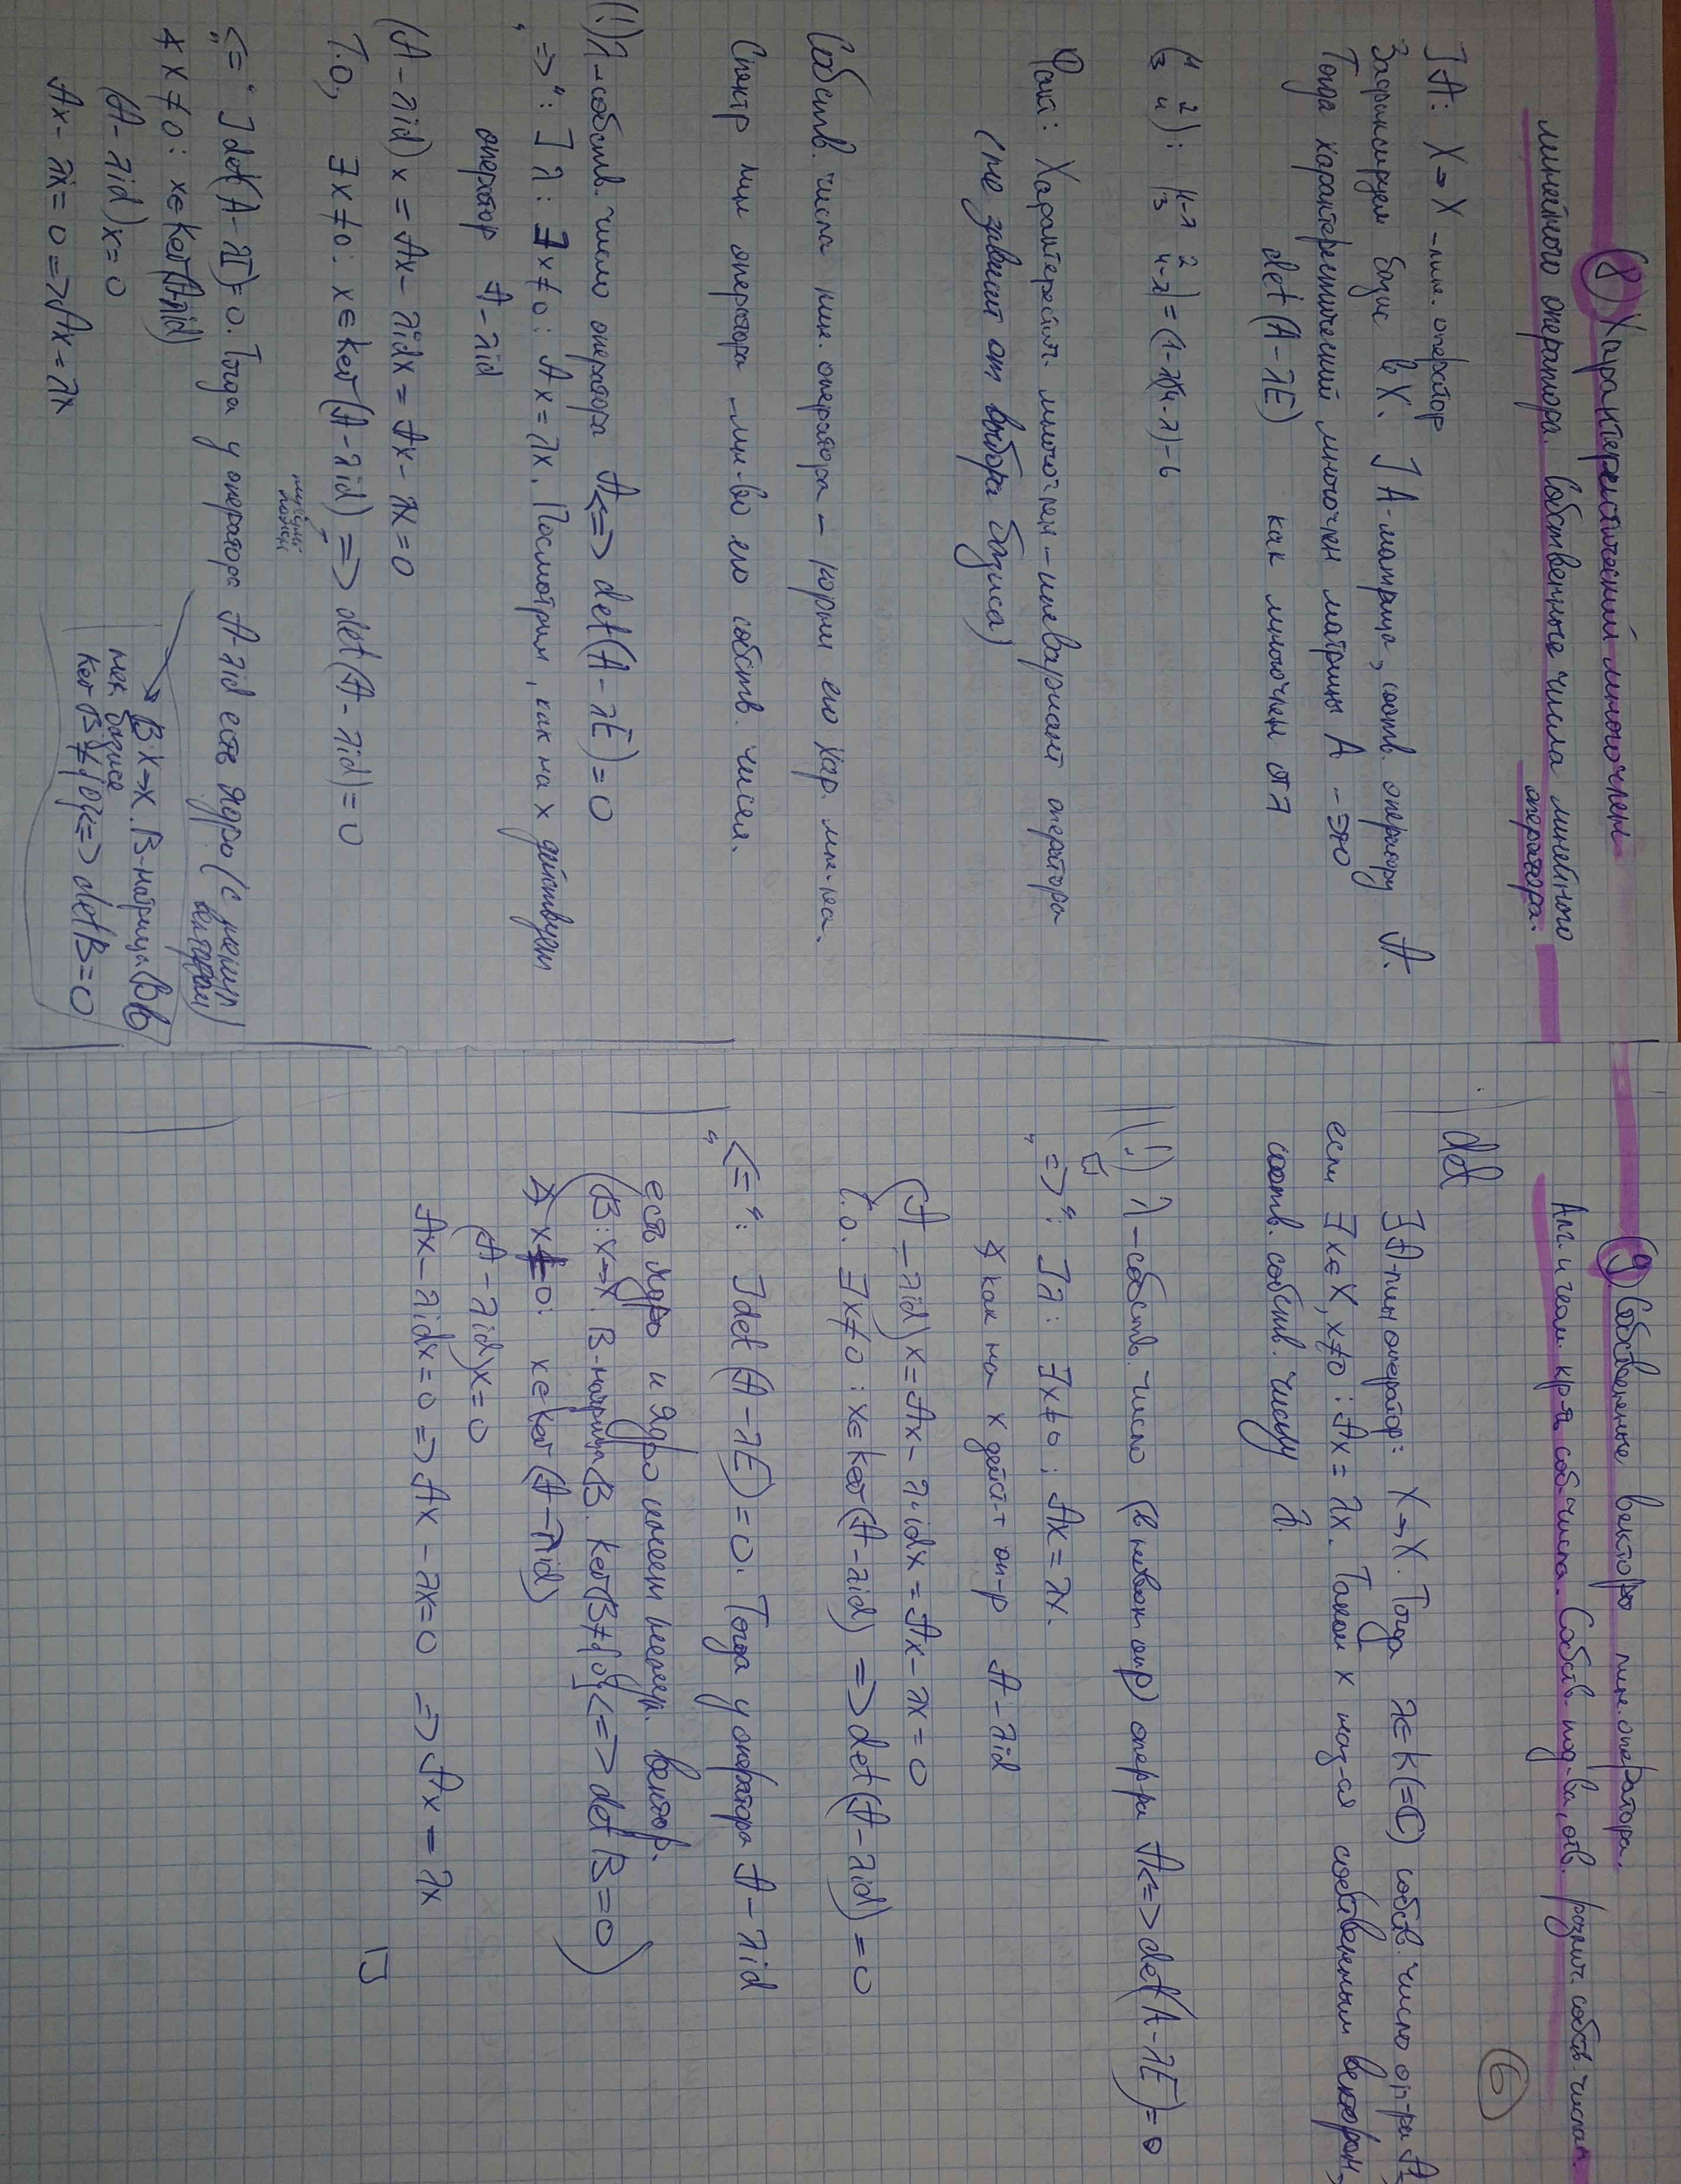 ⑧ Характеристический многочлен
линейного оператора. Собственные числа линейного
оператора.
] 𝒜: X→X - лин. оператор
Зафиксируем базис в X. ] A-матрица, соотв. оператору 𝒜.
Тогда характеристический многочлен матрицы A - это
det(A-λE) как многочлен от λ
(1 2
3 4): |1-λ 2
3 4-λ| = (1-λ)(4-λ)-6
Факт: Характерист. многочлен - инвариант оператора
(не зависит от выбора базиса)
Собств. числа лин. оператора - корни его хар. мн-на.
Спектр лин оператора - мн-во его собств. чисел.
(!) λ-собств. число оператора 𝒜 <=> det(A-λE)=0
„=>“: ] λ: ∃x≠0: 𝒜x=λx. Посмотрим, как на x действует
оператор 𝒜-λid
(𝒜-λid)x = 𝒜x-λidx = 𝒜x-λx=0
Т.о, ∃x≠0: x∈ker(𝒜-λid) => det(𝒜-λid)=0
„<=“ ] det(A-λE)=0. Тогда у оператора 𝒜-λid есть ядро (с ненул
вектором)
∢ x≠0: x∈ker(𝒜-λid)
(𝒜-λid)x=0
𝒜x-λx=0=>𝒜x=λx
ℬ X→X. B-матрица ℬ в
нек базисе
ker ℬ≠{0}<=> detB=0
⑨ Собственные векторы лин. оператора.
Алг. и геом. кр-я соб числа. Собств. под-ва, отв. различ. собств. числам.
⑥
def ] 𝒜-лин оператор: X→X. Тогда λ∈K(=ℂ) собств. число оп-ра 𝒜,
если ∃x∈X, x≠0: 𝒜x=λx. Такой x наз-ся собственным вектором,
соотв. собств. числу λ.
(!) λ-собств. число (в нивен опр) опер-ра 𝒜<=> det(A-λE)=0
□
„=>“: ] λ: ∃x≠0: 𝒜x=λx.
∢ как на x дейст-т оп-р 𝒜-λid
(𝒜-λid)x=𝒜x-λ·idx=𝒜x-λx=0
Т.о. ∃x≠0: x∈ker(𝒜-λid) => det(𝒜-λid)=0
„<=“: ] det(A-λE)=0. Тогда у оператора 𝒜-λid
есть ядро и ядро имеет ненул. вектор.
(ℬ: X→X. B-матрица ℬ. kerℬ≠{0}<=> det B=0)
∢ x≠0: x∈ker(𝒜-λid)
(𝒜-λid)x=0
𝒜x-λidx=0 => 𝒜x-λx=0 => 𝒜x=λx
□